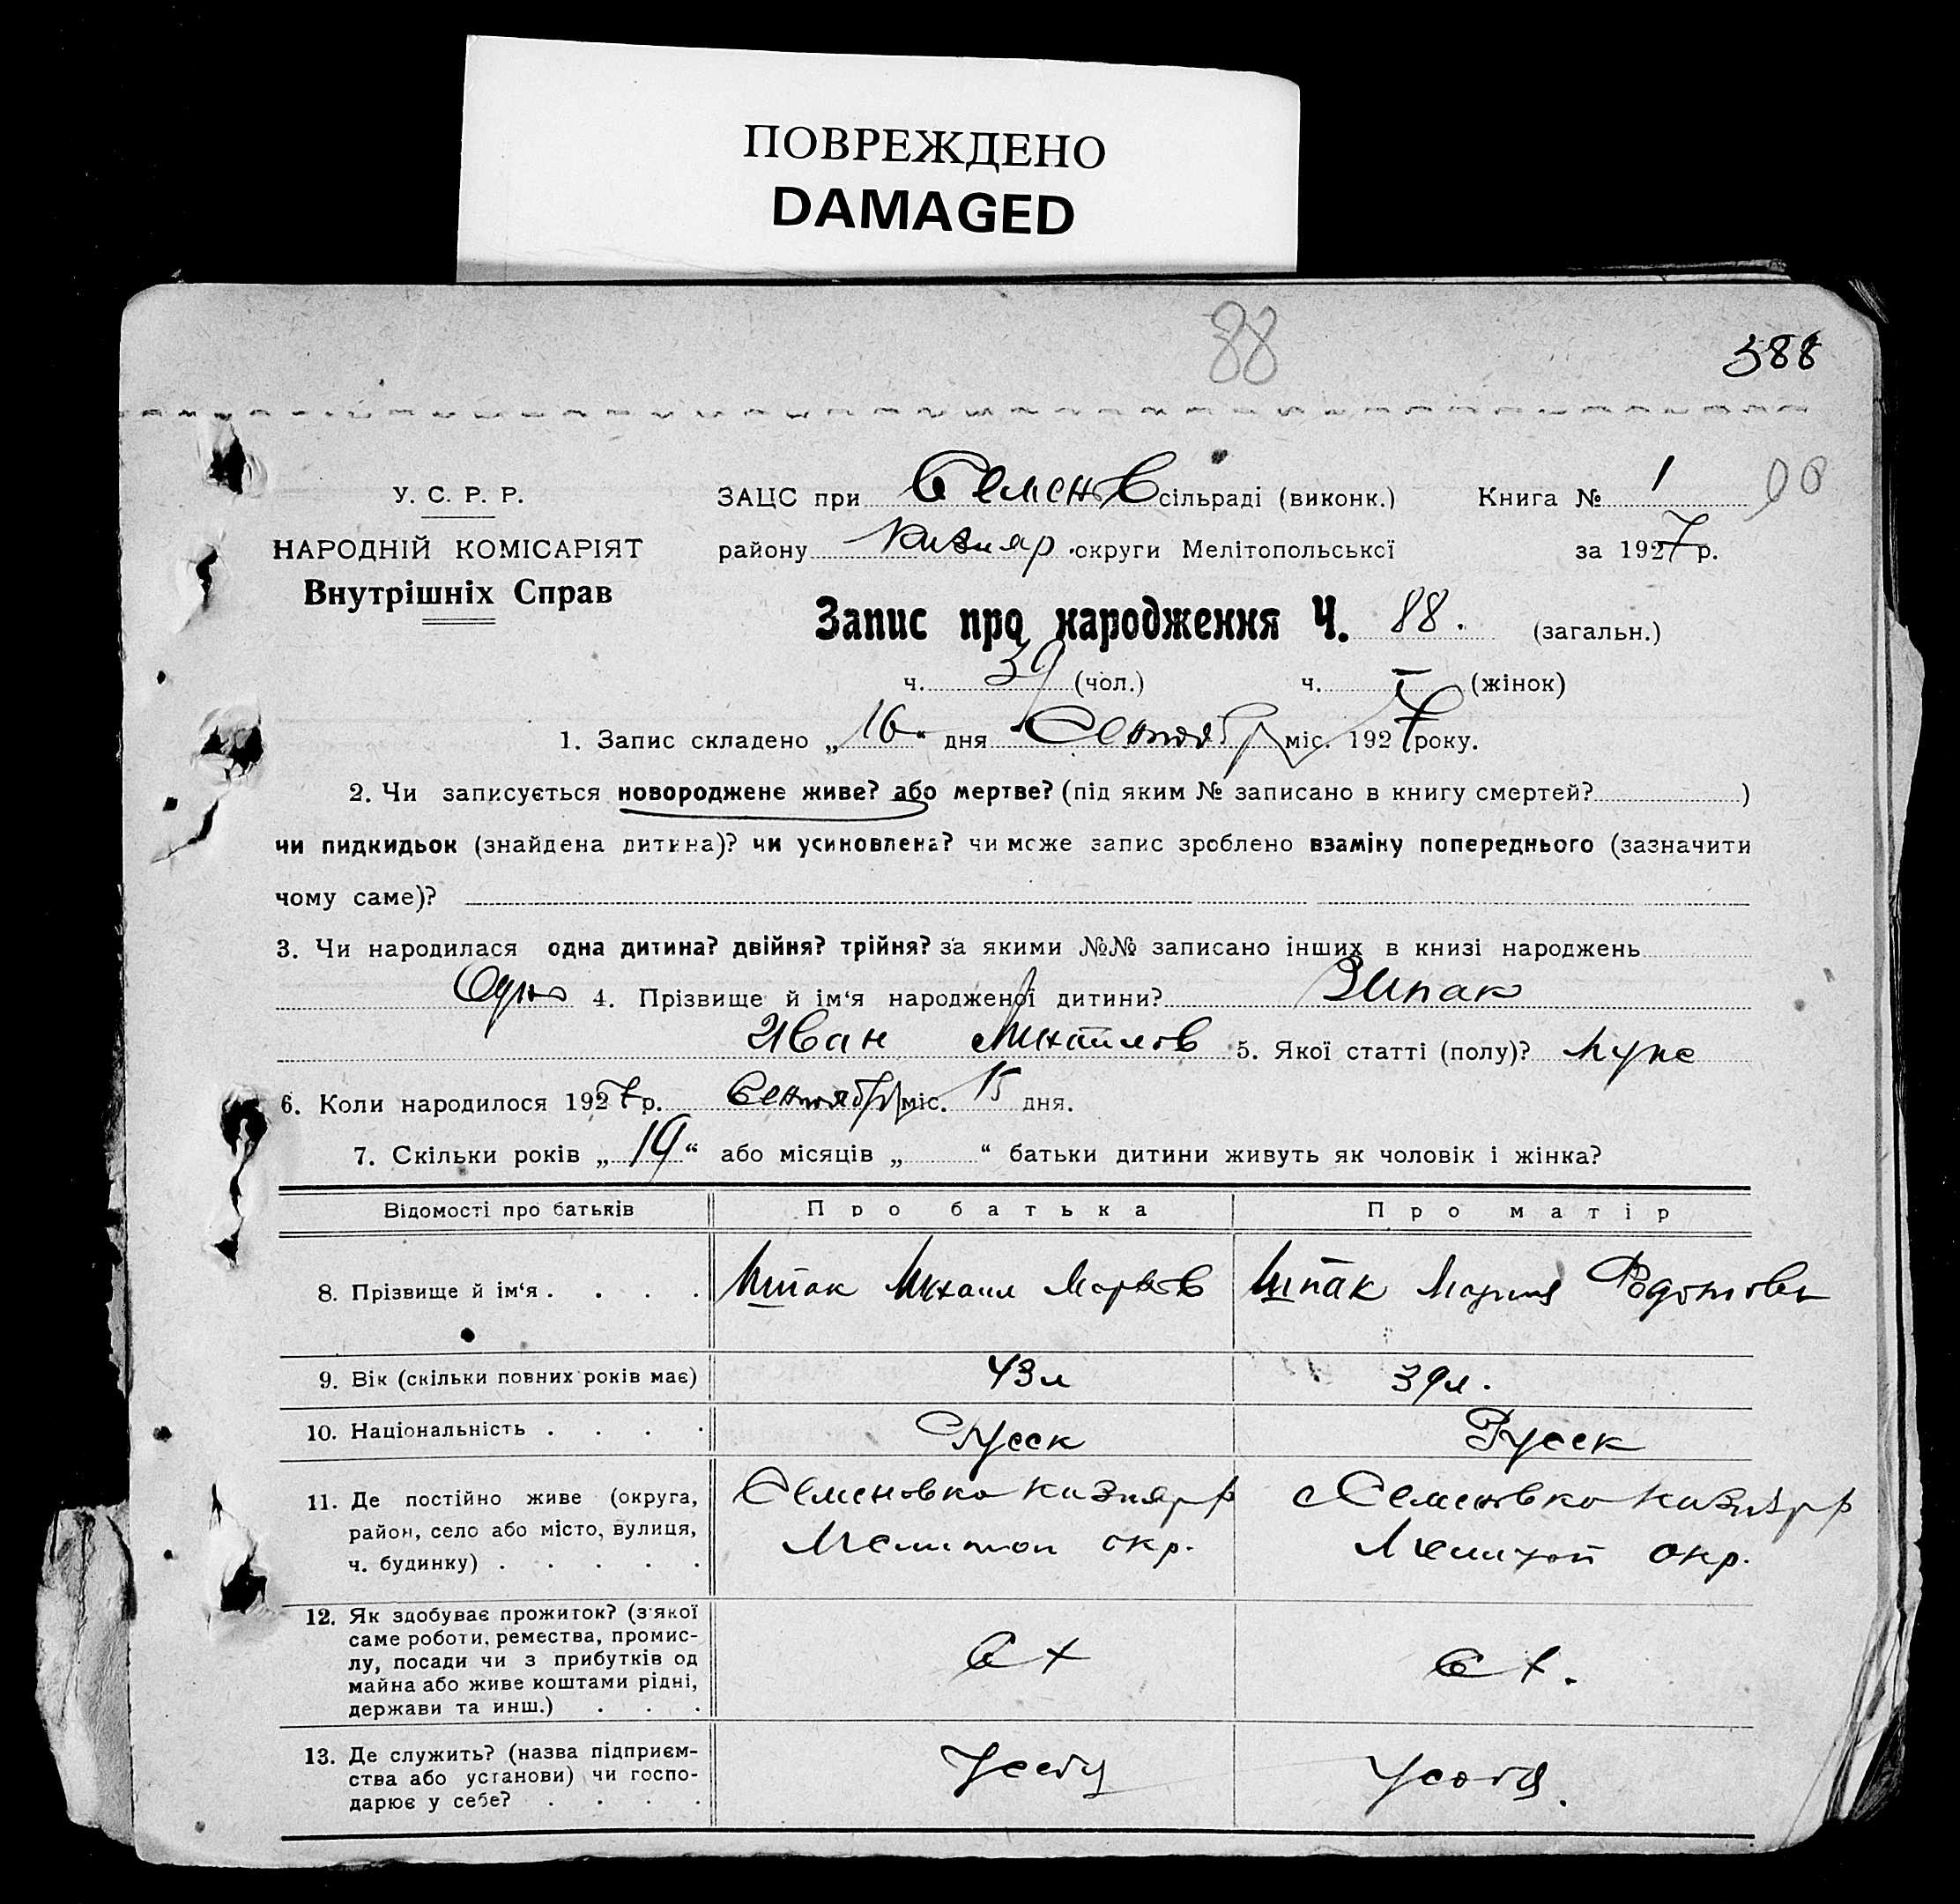 ПОВРЕЖДЕНО
DAMAGED
88
388
У. С. Р. Р.
НАРОДНІЙ КОМІСАРІЯТ
Внутрішніх Справ
ЗАЦС при Семенов сільраді (виконк.) Книга № 1
району Кизияр. округи Мелітопольської за 1927 р.
Запис про народження Ч. 88. (загальн.)
ч. 39 (чол.) ч. (жінок)
1. Запис складено „16“ дня Сентябр міс. 1927 року.
2. Чи записується новороджене живе? або мертве? (під яким № записано в книгу смертей? )
чи пидкидьок (знайдена дитина)? чи усиновлена? чи може запис зроблено взаміну попереднього (зазначити
чому саме)?
3. Чи народилася одна дитина? двійня? трійня? за якими №№ записано інших в книзі народжень
Одно 4. Прізвище й ім‘я народженої дитини? Шпак
Иван Михайлов 5. Якої статті (полу)? Мужс
6. Коли народилося 1927 р. Сентябр міс. 15 дня.
7. Скільки років „19“ або місяців „ “ батьки дитини живуть як чоловік і жінка?
Відомості про батьків Про батька Про матір
8. Прізвище й ім‘я . . . . Шпак Михаил Марков Шпак Мария
9. Вік (скільки повних років має) 43л 39л.
10. Національність . . . . Русск Русск
11. Де постійно живе (округа,
район, село або місто, вулиця,
ч. будинку) . . . . .
Семеновка Кизияр р
Мелитоп окр.
с Семеновка Кизияр р
Мелитоп окр.
12. Як здобуває прожиток? (з'якої
саме роботи, ремества, промис-
лу, посади чи з прибутків од
майна або живе коштами рідні,
держави та инш.) . . .
С Х
С Х.
13. Де служить? (назва підприєм-
ства або установи) чи госпо-
дарює у себе? . . . .
У себя
У себя.